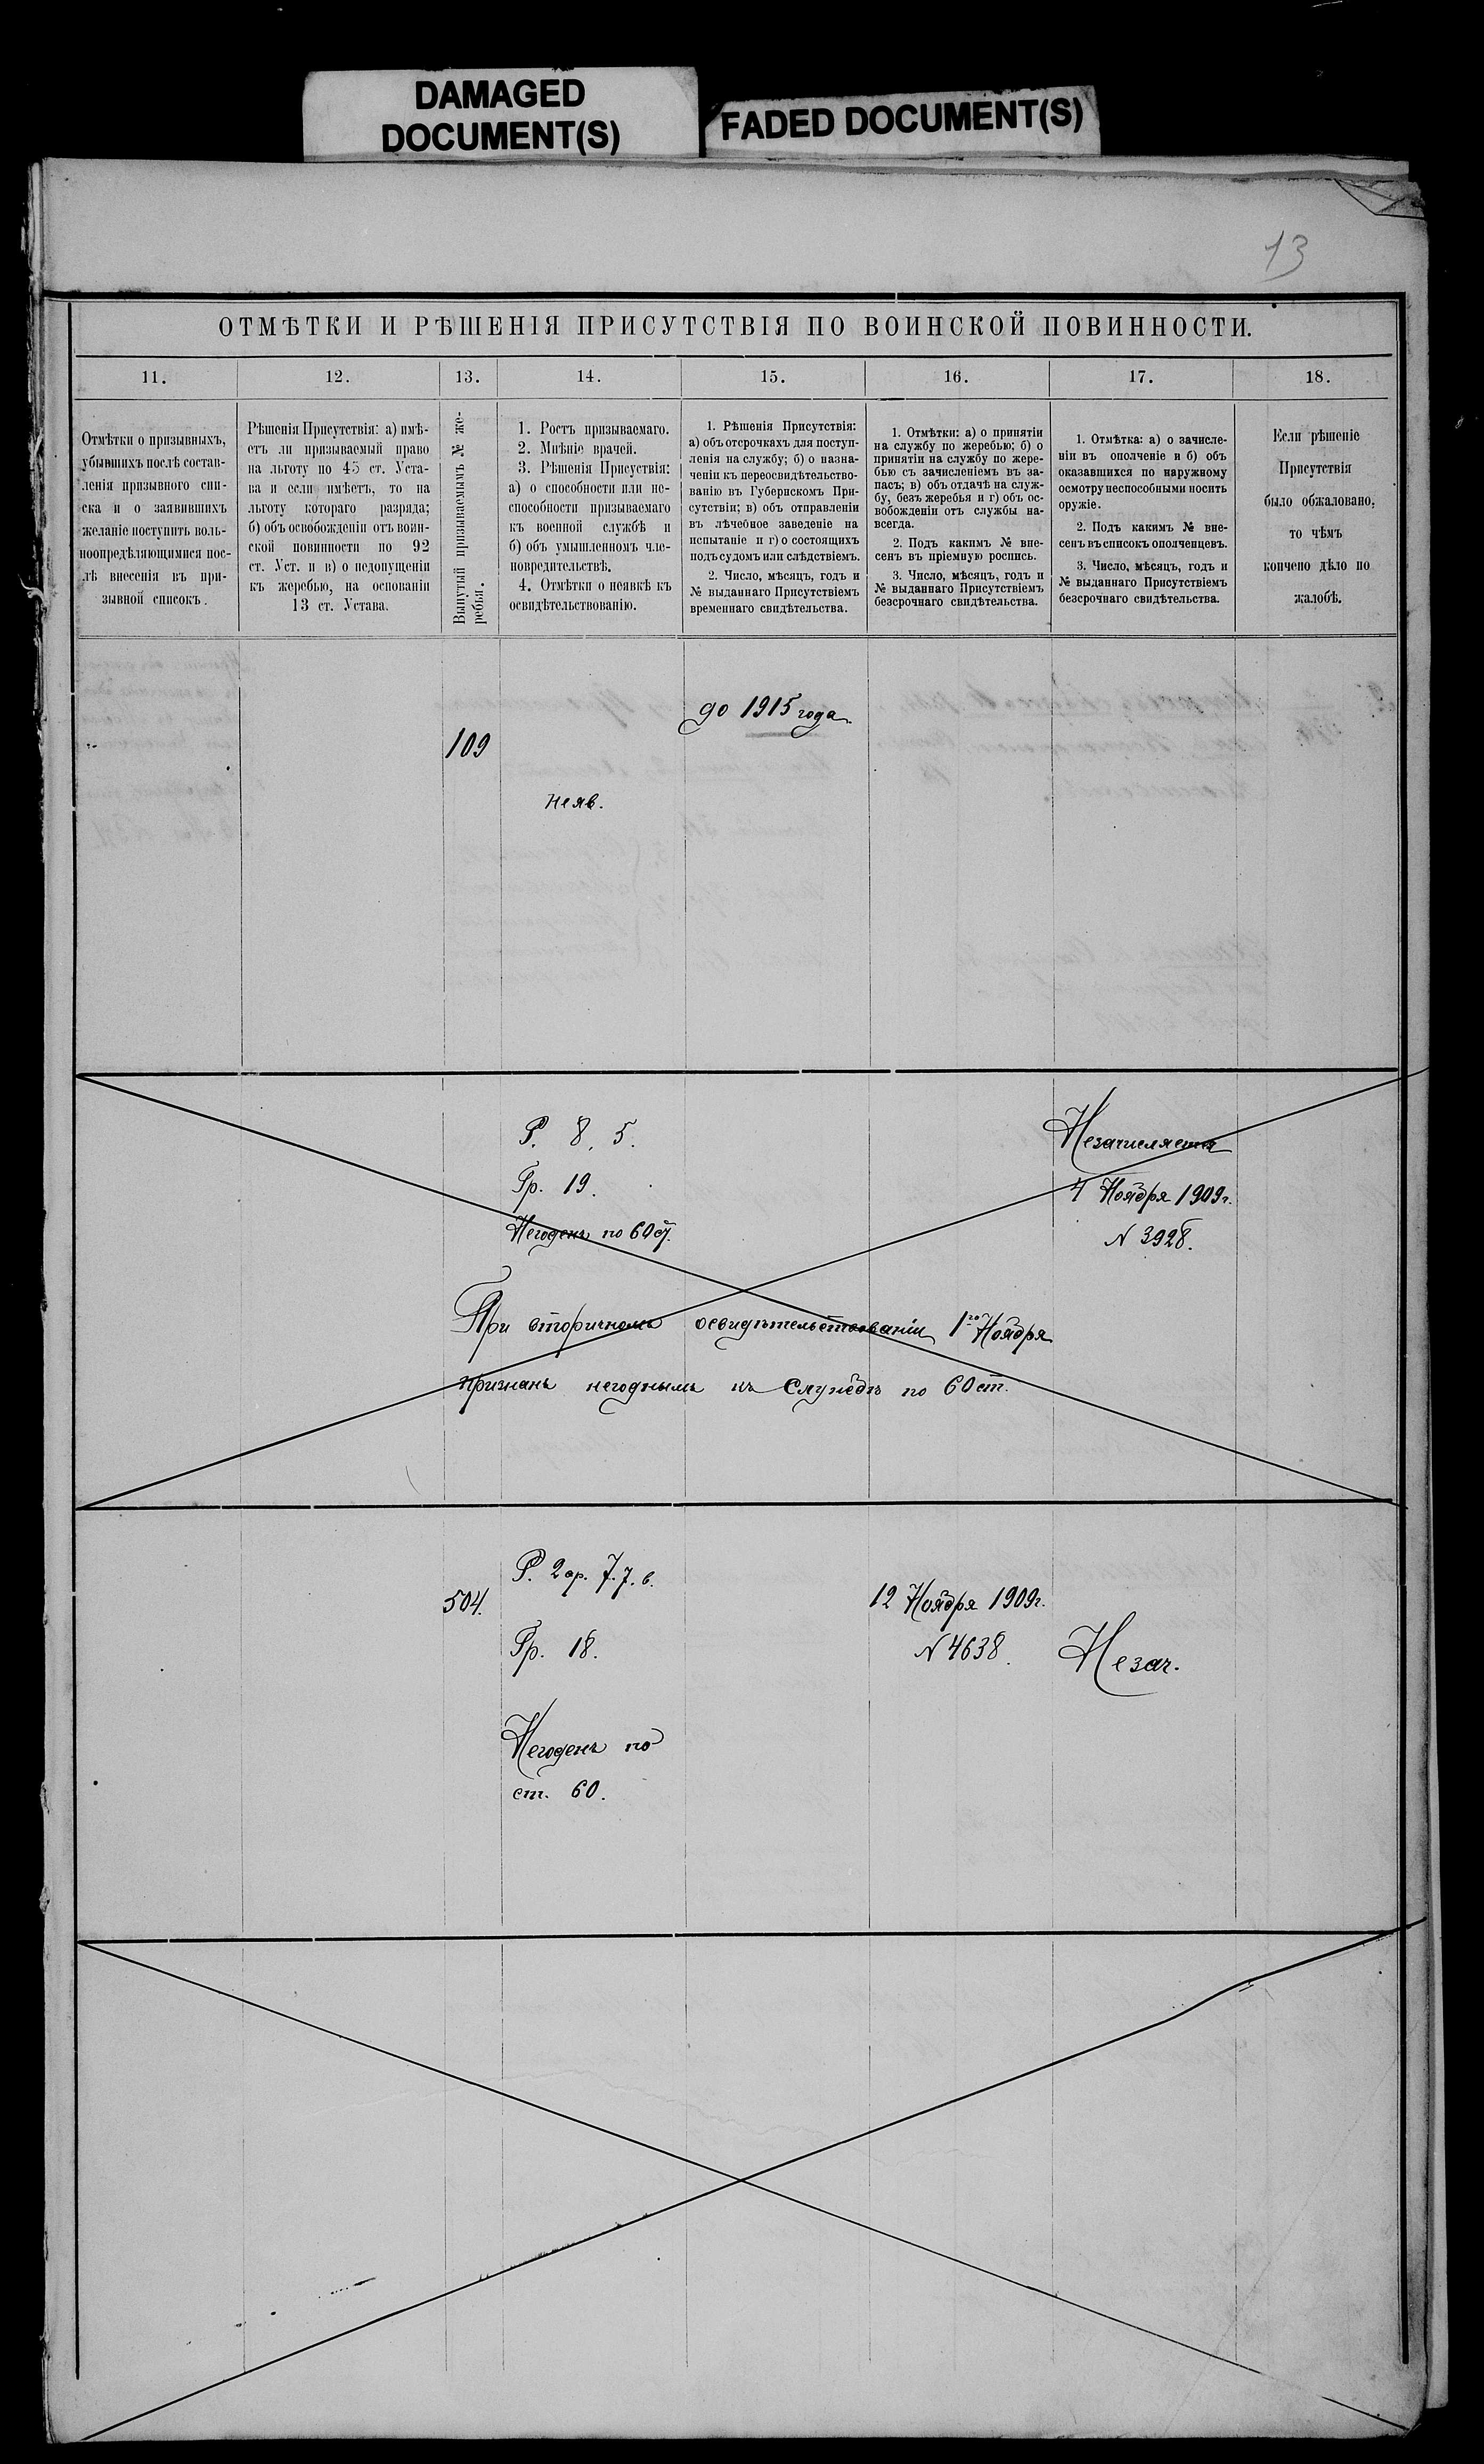 DAMAGED
DOCUMENT(S)
FADED DOCUMENT(S)
13
ОТМѢТКИ И РѢШЕНІЯ ПРИСУТСТВІЯ ПО ВОИНСКОЙ ПОВИННОСТИ.
11.
12.
13.
14.
15.
16.
17.
18.
Отмѣтки о призывныхъ,
убывшихъ послѣ состав-
ленія призывного спи-
ска и о заявившихъ
желаніе поступить воль-
ноопредѣляющимися пос-
лѣ внесенія въ при-
зывной списокъ.
Рѣшенія Присутствія: а) имѣ-
етъ ли призываемый право
на льготу по 45 ст. Уста-
ва и если имѣетъ, то на
льготу котораго разряда;
б) объ освобожденіи отъ воин-
ской повинности по 92
ст. Уст. и в) о недопущеніи
къ жеребью, на основаніи
13 ст. Устава.
Вынутый призываемымъ № же-
ребья.
1. Ростъ призываемаго.
2. Мнѣніе врачей.
3. Рѣшенія Присуствія:
а) о способности или не-
способности призываемаго
къ военной службѣ и
б) объ умышленномъ чле-
новредительствѣ.
4. Отмѣтки о неявкѣ къ
освидѣтельствованію.
1. Рѣшенія Присутствія:
а) объ отсрочкахъ для поступ-
ленія на службу; б) о назна-
ченіи къ переосвидѣтельство-
ванію въ Губернскомъ При-
сутствіи; в) объ отправленіи
въ лѣчебное заведеніе на
испытаніе и г) о состоящихъ
подъ судомъ или слѣдствіемъ.
2. Число, мѣсяцъ, годъ и
№ выданнаго Присутствіемъ
временнаго свидѣтельства.
1. Отмѣтки: а) о принятіи
на службу по жеребью; б) о
принятіи на службу по жере-
бью съ зачисленіемъ въ за-
пасъ; в) объ отдачѣ на служ-
бу, безъ жеребья и г) объ ос-
вобожденіи отъ службы на-
всегда.
2. Подъ какимъ № вне-
сенъ въ пріемную роспись.
3. Число, мѣсяцъ, годъ и
№ выданнаго Присутствіемъ
безсрочнаго свидѣтельства.
1. Отмѣтка: а) о зачисле-
ніи въ ополченіе и б) объ
оказавшихся по наружному
осмотру неспособными носить
оружіе.
2. Подъ какимъ № вне-
сенъ въ списокъ ополченцевъ.
3. Число, мѣсяцъ, годъ и
№ выданнаго Присутствіемъ
безсрочнаго свидѣтельства.
Если рѣшеніе
Присутствія
было обжаловано,
то чѣмъ
кончено дѣло по
жалобѣ.
до 1915 года
109
Неяв.
Р. 8, 5.
Гр. 19.
Негоденъ по 60 ст.
Незачисляется
4 Ноября 1909г.
N 3928.
При вторичномъ освидѣтельствованіи 1го Ноября
признанъ негоднымъ къ службѣ по 60 ст.
504.
Р. 2 ар. 7. 7. в.
Гр. 18.
Негоденъ по
ст. 60.
12 Ноября 1909г.
N 4638.
Незач.